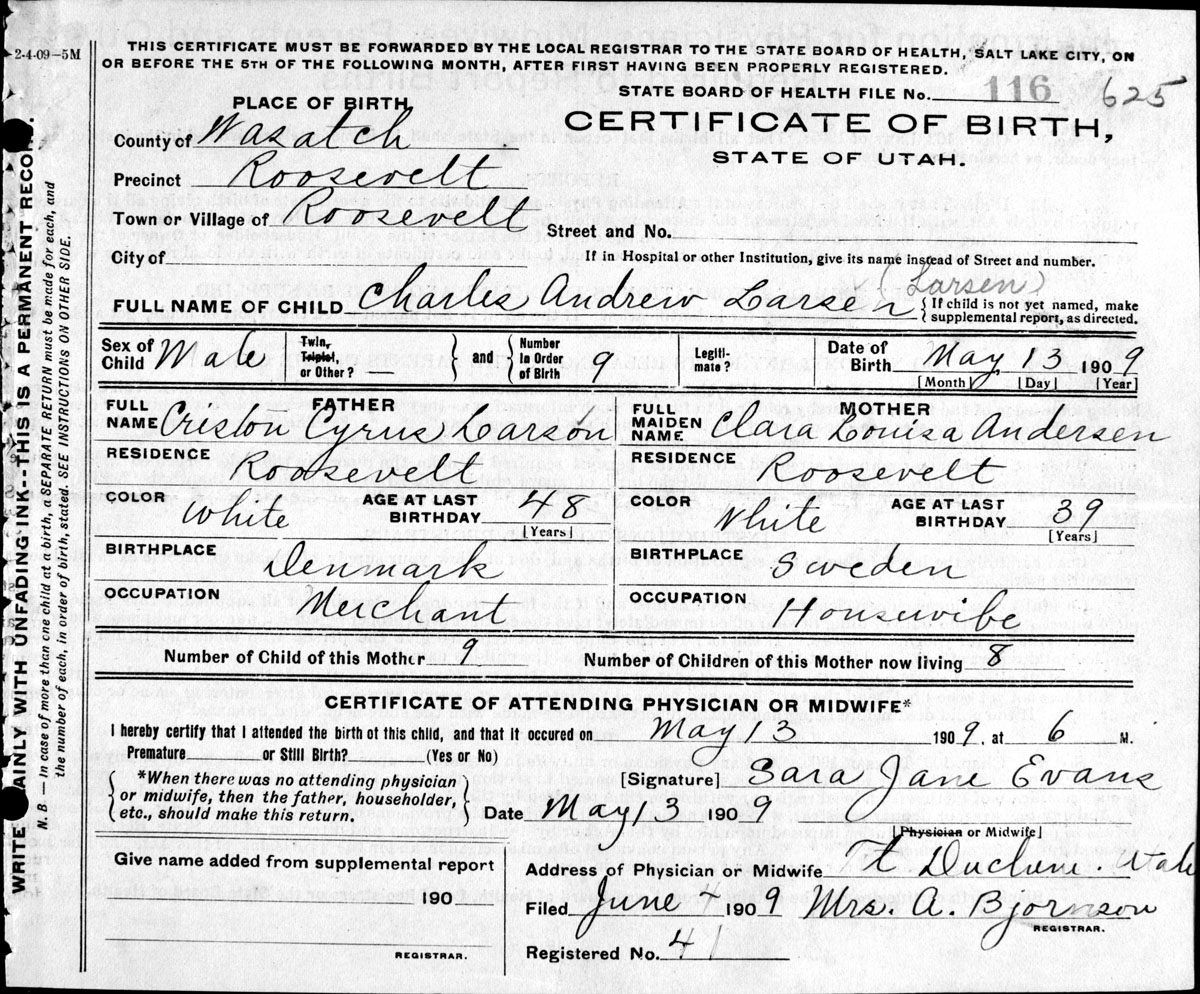 2-4-09-5M
THIS CERTIFICATE MUST BE FORWARDED BY THE LOCAL REGISTRAR TO THE STATE BOARD OF HEALTH, SALT LAKE CITY, ON
OR BEFORE THE 5TH OF THE FOLLOWING MONTH, AFTER FIRST HAVING BEEN PROPERLY REGISTERED.
STATE BOARD OF HEALTH FILE No. 116 625
PLACE OF BIRTH
CERTIFICATE OF BIRTH,
STATE OF UTAH.
County of Wasatch
Precinct Roosevelt
Town or Village of Roosevelt Street and No.
City of If in Hospital or other Institution, give its name instead of Street and number.
FULL NAME OF CHILD Charles Andrew Larsen (Larsen) { If child is not yet named, make
supplemental report, as directed.
Sex of Child Male Twin, Triplet, or Other? } and { Number in Order of Birth 9 Legiti-mate? Date of Birth May 13 1909
[Month] [Day] [Year]
FATHER
FULL NAME Creston Cyrus Larson
RESIDENCE Roosevelt
COLOR White AGE AT LAST BIRTHDAY 48 [Years]
BIRTHPLACE Denmark
OCCUPATION Merchant
MOTHER
FULL MAIDEN NAME Clara Louisa Andersen
RESIDENCE Roosevelt
COLOR White AGE AT LAST BIRTHDAY 39 [Years]
BIRTHPLACE Sweden
OCCUPATION Housewibe
Number of Child of this Mother 9 Number of Children of this Mother now living 8
CERTIFICATE OF ATTENDING PHYSICIAN OR MIDWIFE*
I hereby certify that I attended the birth of this child, and that it occured on May 13 1909, at 6 M.
Premature or Still Birth? (Yes or No)
*When there was no attending physician
or midwife, then the father, householder,
etc., should make this return.
[Signature] Sara Jane Evans
Date May 13 1909
[Physician or Midwife]
Give name added from supplemental report
190
REGISTRAR.
Address of Physician or Midwife Ft. Duchene. Utah
Filed June 4 1909 Mrs. A. Bjornson
REGISTRAR.
Registered No. 41
WRITE PLAINLY WITH UNFADING INK--THIS IS A PERMANENT RECORD.
N. B.—In case of more then one child at a birth, a SEPARATE RETURN must be made for each, and
the number of each, in order of birth, stated. SEE INSTRUCTIONS ON OTHER SIDE.